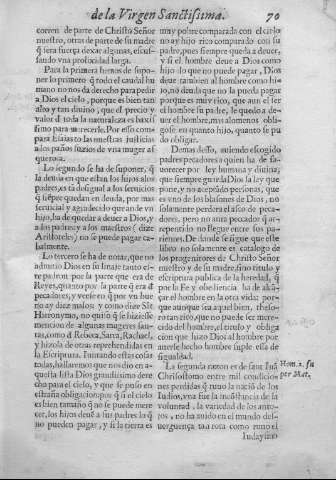 de la Virgen Sanctissima. 70
correr de parte de Christo Señor
nuestro, otras de parte de su madre
q̃ sera fuerça dexar algunas, escu-
sando vna profocidad larga.
Para la primera hemos de supo-
ner lo primero q̃ todo el caudal hu-
mano no nos da derecho para pedir
a Dios el cielo, porque es bien tan
alto y tan diuino, que el precio y
valor d̃ toda la naturaleza es baxis-
simo para merecerle. Por esso com-
para Esaias todas nuestras justicias
a los paños suzios de vna muger as-
querosa.
Lo segundo se ha de suponer, q̃
la deuda en que estan los hijos a los
padres, es tã desigual a los seruicios
q̃ siẽpre quedan en deuda, por mas
seruicial y agradecido que ande vn
hijo, ha de quedar a deuer a Dios, y
a los padres y a los maestros (dize
Aristoteles) no se puede pagar ca-
balmente.
Lo tercero se ha de notar, que no
admitio Dios en su linaje tanto cier-
tos padres por la parte que era de
Reyes, quanto por la parte q̃ era d̃
pecadores, y verse en q̃ por vn bue-
no ay diez malos: y como dize San
Hieronymo, no quiso q̃ se hiziesse
mencion de algunas mugeres san-
tas, como d̃ Reboca, Sarra, Rachael,
y hizola de otras reprehendidas en
la Escriptura. Iuntando estas cosas
todas, hallaremos que nos dio en a-
questa lista Dios grandissimo dere-
cho para el cielo, y que se puso en
estraña obligacion: porque q̃ si el cielo
es bien tamaño q̃ no se puede mere-
cer, los hijos deuẽ a sus padres lo q̃
no se puede pagar, y si la tierra es
muy pobre comparada con el cielo
no ay hijo rico comparado con su
padre, pues siempre queda a deuer,
y si el hombre deue a Dios como
hijo lo que no puede pagar, Dios
deue tambien al hombre como hi-
jo, no deuda que no la pueda pagar
porque es muy rico, que aun el ser
el hombre su padre, le quedo a de-
uer el hombre, mas alomenos obli-
gose en quanto hijo, quanto se pu-
do obligar.
Demas desto, auiendo escogido
padres pecadores a quien ha de fa-
uorecer por ley humana y diuina,
que siempre guarda Dios la ley que
pone, y no aceptãdo personas, que
es vno de los blasones de Dios, no
solamente perdera el asco de peca-
dores, pero no aura pecador q̃ ar-
repentido no llegue entre sus pa-
rientes. De donde se sigue que este
libro no solamente es catalogo de
los progenitores de Christo Señor
nuestro y de su madre, sino titulo y
escriptura publica de la heredad, q̃
por la Fe y obediencia ha de alcã-
çar el hombre en la otra vida: por-
que aunque sea aquel bien, theso-
ro tan rico, que no puede ser mere-
cido del hombre, el titulo y obliga-
cion que hizo Dios al hombre por
auerse hecho hombre suple essa de-
sigualdad.
La segunda razon es de sant Iuã
Chrisostomo entre mil condicio-
nes perdidas q̃ tuuo la nacio de los
Iudios, vna fue la incõstancia de la
voluntad, la variedad de los anto-
jos, no ha auido en el mundo des-
uerguença tan rota como tuuo el
Iudaysmo
Hom. 2. su
per Mat.